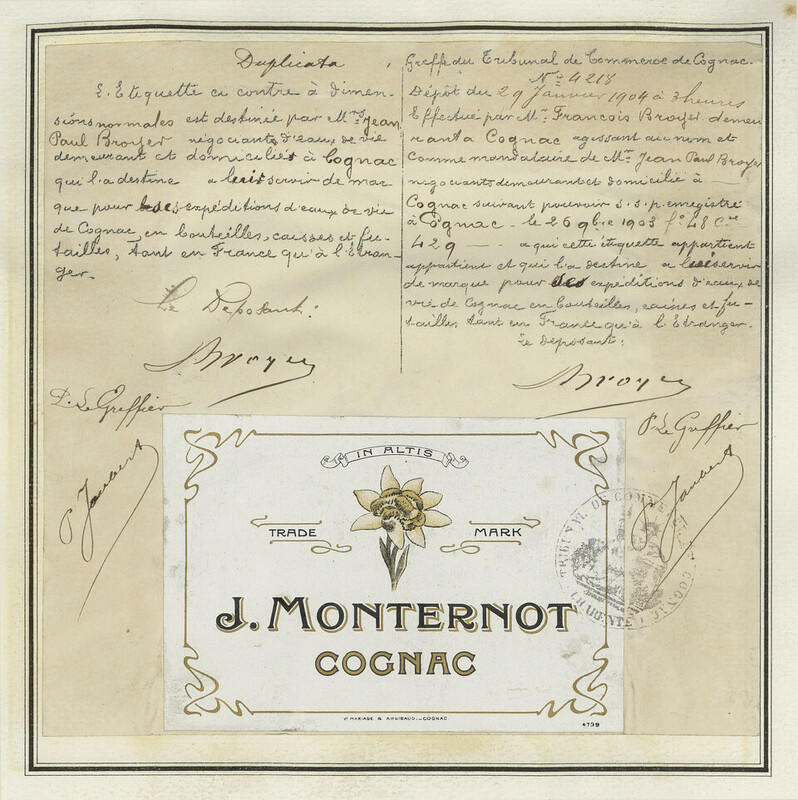 Duplicata
L'Etiquette ci contre à dimen-
sions normales est destinée par Mr. Jean
Paul Broyer négociants d'eaux de vie
demeurant et domiciliés à Cognac
qui l'a destine a lui servir de mar
que pour des expéditions d'eaux de vie
de Cognac, en bouteilles, caisses et fu-
tailles, tant en France qu'à l'Etran-
ger.
Le Deposant:
Broyer
P. Le Greffier
P Jaubert
Greffe du Tribunal de Commerce de Cognac.
No 4218
Dépôt du 29 Janvier 1904 à 3 heures
Effectué par Mr. Francois Broyer demeu
rant a Cognac agissant au nom et
Comme mandataire de Mr. Jean Paul Broyer
négociants demeurant et domicilié à
Cognac suivant pouvoir s.s.p. enregistré
à Cognac - le 26 9bre 1903 fo 48 Cse
429 - a qui cette étiquette appartient
appartient et qui l'a destine a lui servir
de marque pour des expéditions d'eaux de
vie de Cognac en bouteilles, caisses et fu-
tailles tant en France qu'à l'Etranger.
Le deposant:
Broyer
P Le Greffier
Jaubert
IN ALTIS
TRADE MARK
J. MONTERNOT
COGNAC
MARIAGE & COGNAC
4799
TRIBUNAL DE COMMERCE COGNAC
CHARENTE